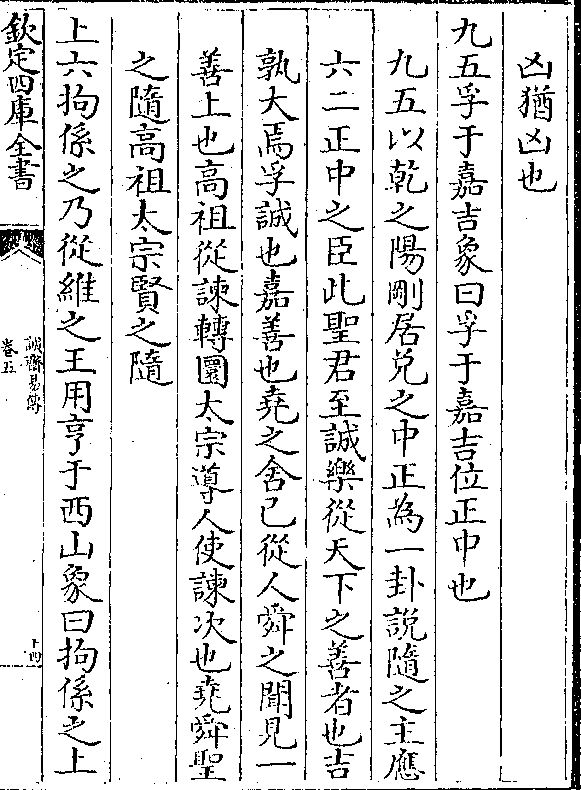 凶猶凶也
九五孚于嘉吉象曰孚于嘉吉位正中也
九五以乾之陽剛居兊之中正為一卦說隨之主應
六二正中之臣此聖君至誠樂從天下之善者也吉
孰大焉孚誠也嘉善也堯之舍已從人舜之聞見一
善上也髙祖從諫轉圜太宗導人使諫次也堯舜聖
之隨髙祖太宗賢之隨
上六拘係之乃從維之王用亨于西山象曰拘係之上
欽定四庫全書
誠齋易傳
卷五
十四